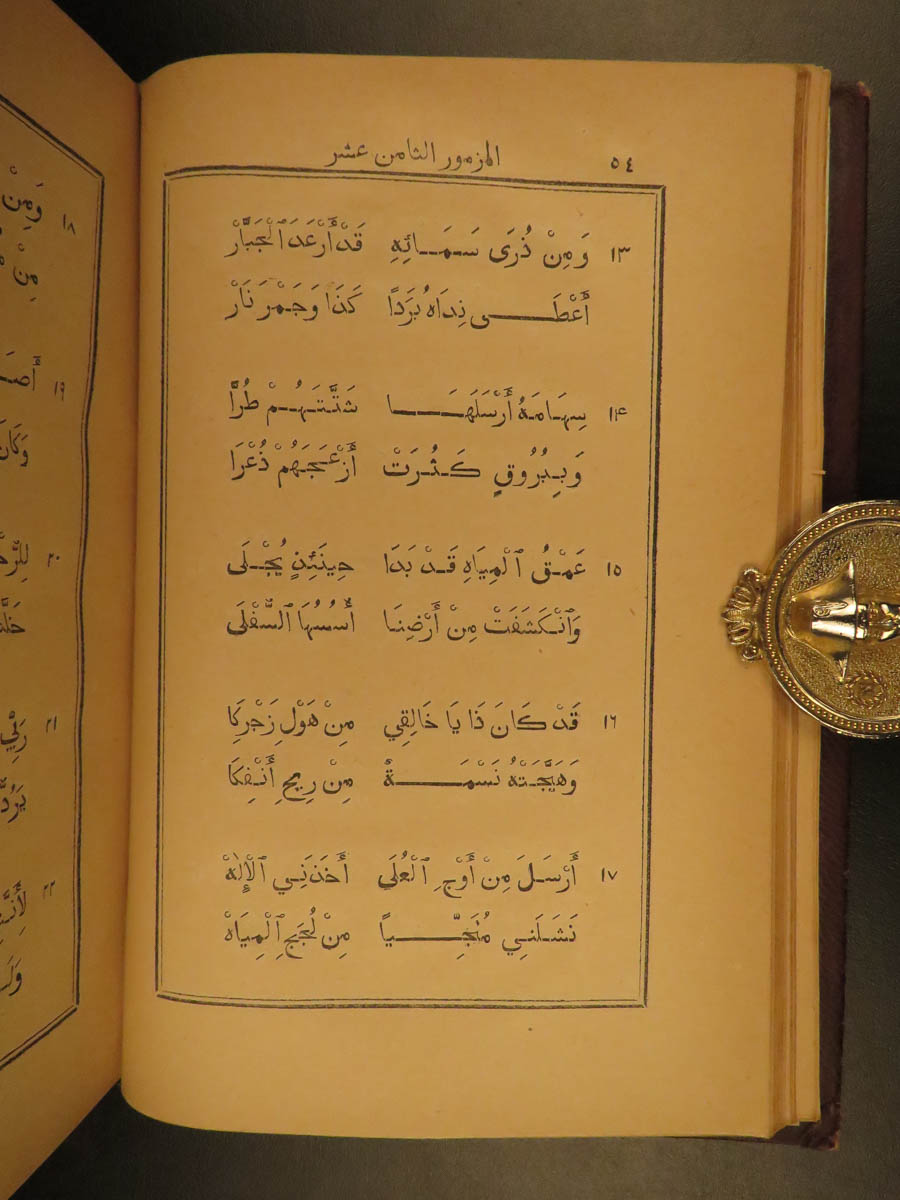 ٥٤ المزمور الثامن عشر
١٣ وَمِنْ ذُرَى سَمَائِهِ قَدْ أَرْعَدَ ٱلْجَبَّارْ
أَعْطَى نِدَاهُ بَرَدًا كَذَا وَجَمْرَ نَارْ
١٤ سِهَامَهُ أَرْسَلَهَا شَتَّتَهُمْ طُرَّا
وَبِبُرُوقٍ كَثُرَتْ أَزْعَجَهُمْ ذُعْرَا
١٥ عَمْقُ ٱلْمِيَاهِ قَدْ بَدَا حِينَئِذٍ يُجْلَى
وَٱنْكَشَفَتْ مِنْ أَرْضِنَا أُسُسُهَا ٱلسُّفْلَى
١٦ قَدْ كَانَ ذَا يَا خَالِقِي مِنْ هَوْلِ زَجْرِكَا
وَهَيَّجَتْهُ نَسْمَةٌ مِنْ رِيحِ أَنْفِكَا
١٧ أَرْسَلَ مِنْ أَوْجِ ٱلْعُلَى أَخَذَنِي ٱلْإِلٰهْ
نَشَلَنِي مُنَجِّيًا مِنْ لُجَجِ ٱلْمِيَاهْ
١٨ وَمِنْ
مِنْ
١٩
وَكَانَ
٢٠
٢١ رَبِّي
٢٢